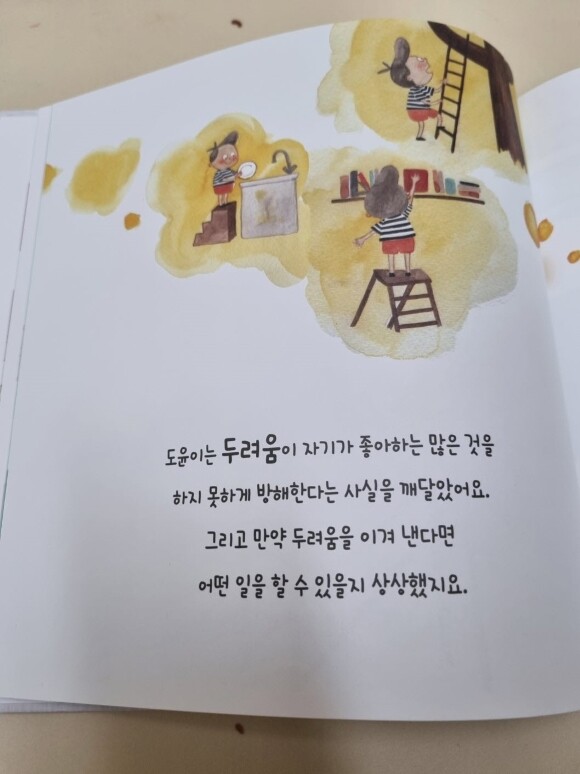 도윤이는 두려움이 자기가 좋아하는 많은 것을
하지 못하게 방해한다는 사실을 깨달았어요.
그리고 만약 두려움을 이겨 낸다면
어떤 일을 할 수 있을지 상상했지요.